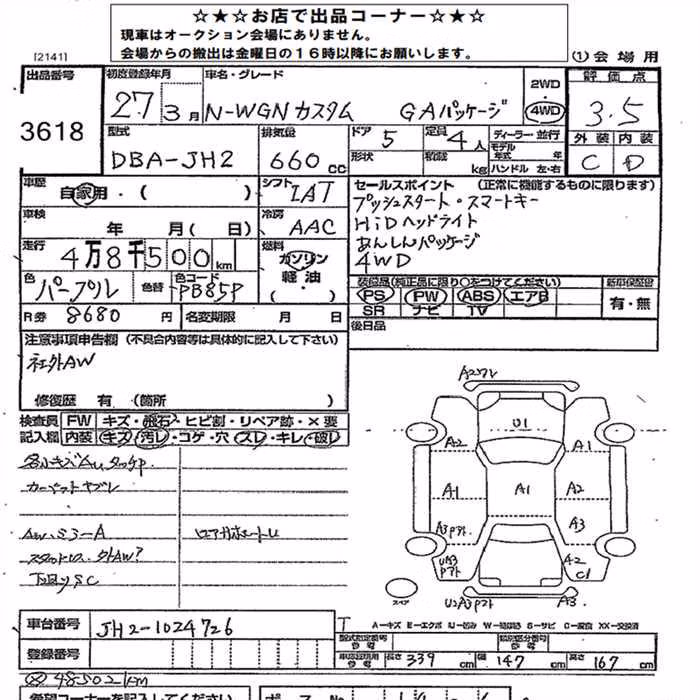 ☆★☆お店で出品コーナー☆★☆
現車はオークション会場にありません。
会場からの搬出は金曜日の16時以降にお願いします。
[2141]
(1)会場用
出品番号
3618
初度登録年月
27 3月
車名・グレード
N-WGNカスタム GAパッケージ
2WD
4WD
評価点
3.5
型式
DBA-JH2
排気量
660 CC
ドア
5
定員
4人
ディーラー 並行
モデル年式 年
形状
積載 kg
ハンドル 左・右
外装 内装
C D
車歴
自家用・( )
シフト
IAT
セールスポイント (正常に機能するものに限ります)
プッシュスタート・スマートキー
HiDヘッドライト
あんしんパッケージ
4WD
車検
年 月(日)
冷房
AAC
走行
4万8千500km
燃料
ガソリン
軽油
・( )
色
パープル
色替
色コード
PB85P
装備品(純正品に限り○をつけてください)
新車保証書
PS PW ABS エアB
SR ナビ TV
有・無
R券 8680 円
名変期限 月 日
後日品
注意事項申告欄 (不具合内容等は具体的に記入して下さい)
社外AW
修復歴 有 (箇所 )
検査員 FW キズ・飛石・ヒビ割・リペア跡・×要
記入欄 内装 キズ・汚レ・コゲ・穴・スレ・キレ・破レ
カーペットヤブレ
AW.S3-A
リアガボートU
下回りSC
A2
U1
A2
A1
A1
A1
A2
A3
A3
A2
C1
スペア
A3
A-キズ E-エクボ U-凹み W-補修跡 S-サビ C-腐食 XX-交換済
車台番号 JH2-1024726
登録番号
型式指定番号 参考
類別区分番号 参考
車両詳細用 参考 長さ 339 cm 幅 147 cm 高さ 167 cm
48502km
希望コーナーを記入してください